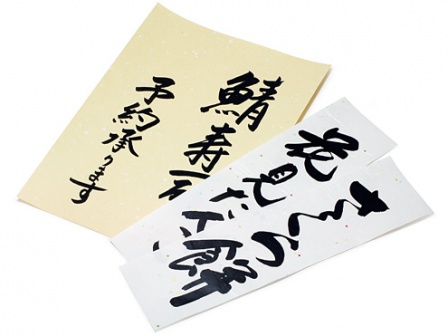 鯖寿
予約承ります
花見だ
さくら餅